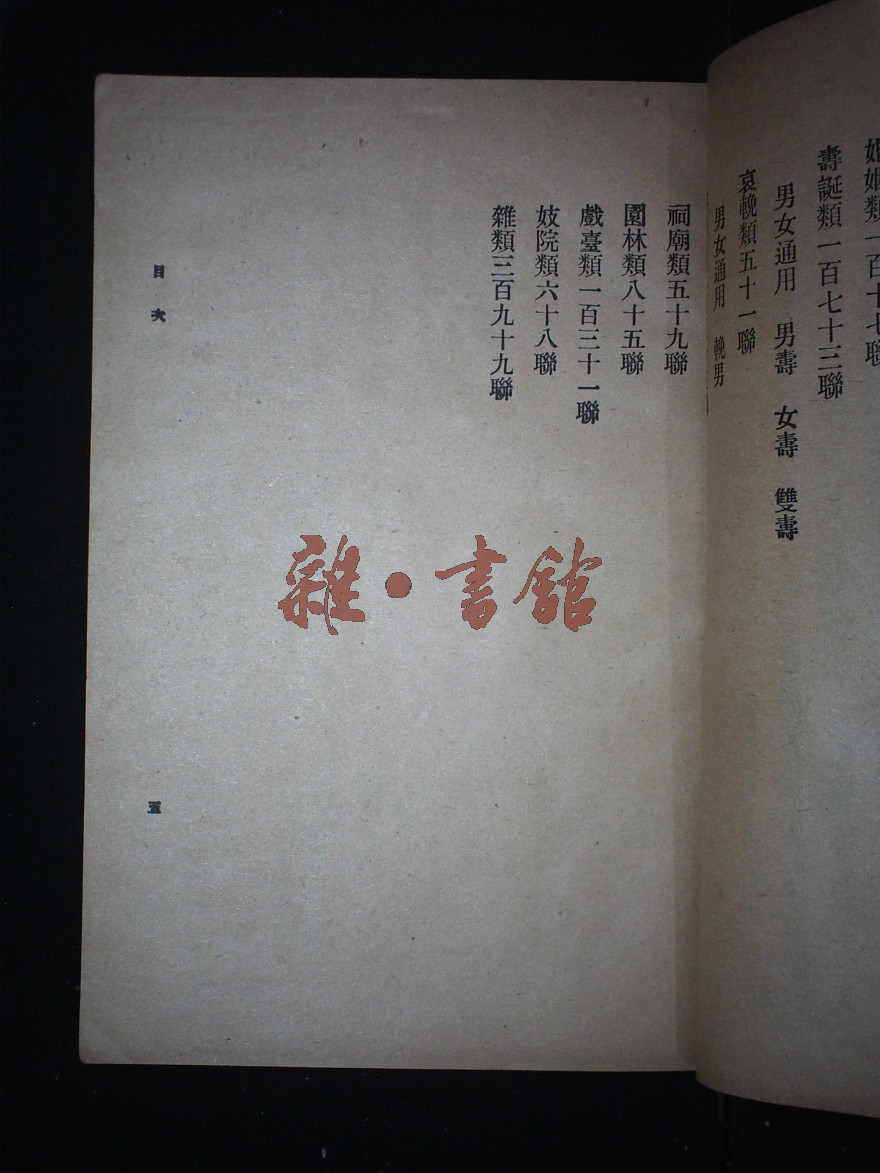 婚姻類一百十七聯
壽誕類一百七十三聯
男女通用 男壽 女壽 雙壽
哀輓類五十一聯
男女通用 輓男
祠廟類五十九聯
園林類八十五聯
戲臺類一百三十一聯
妓院類六十八聯
雜類三百九十九聯
目次
五
雜·書館